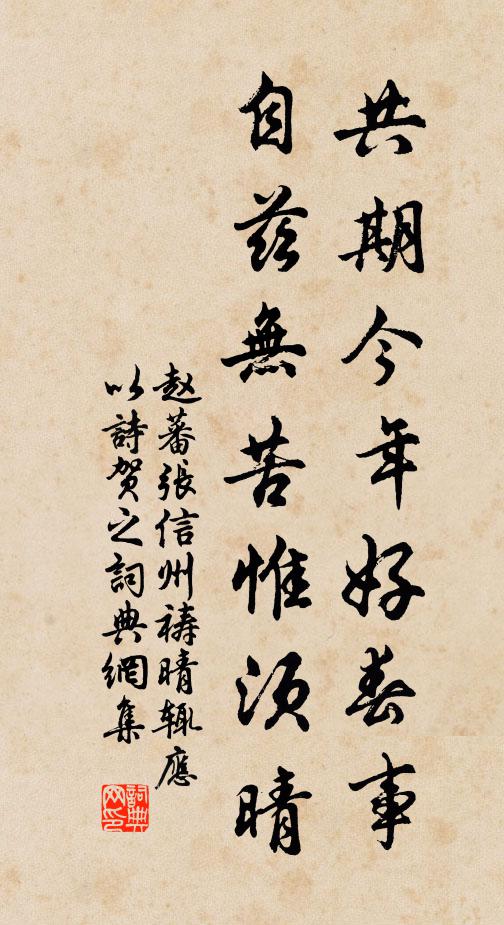 共期今年好春事
自茲無苦惟須晴
赵蕃張信州禱晴輒應
以詩贺之詞典網集
詞典
网印